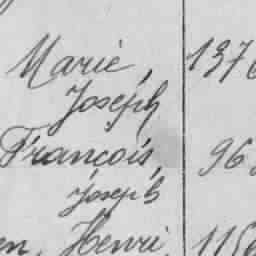 Marie, 137
Joseph
François, 96
Joseph
en, Henri, 115